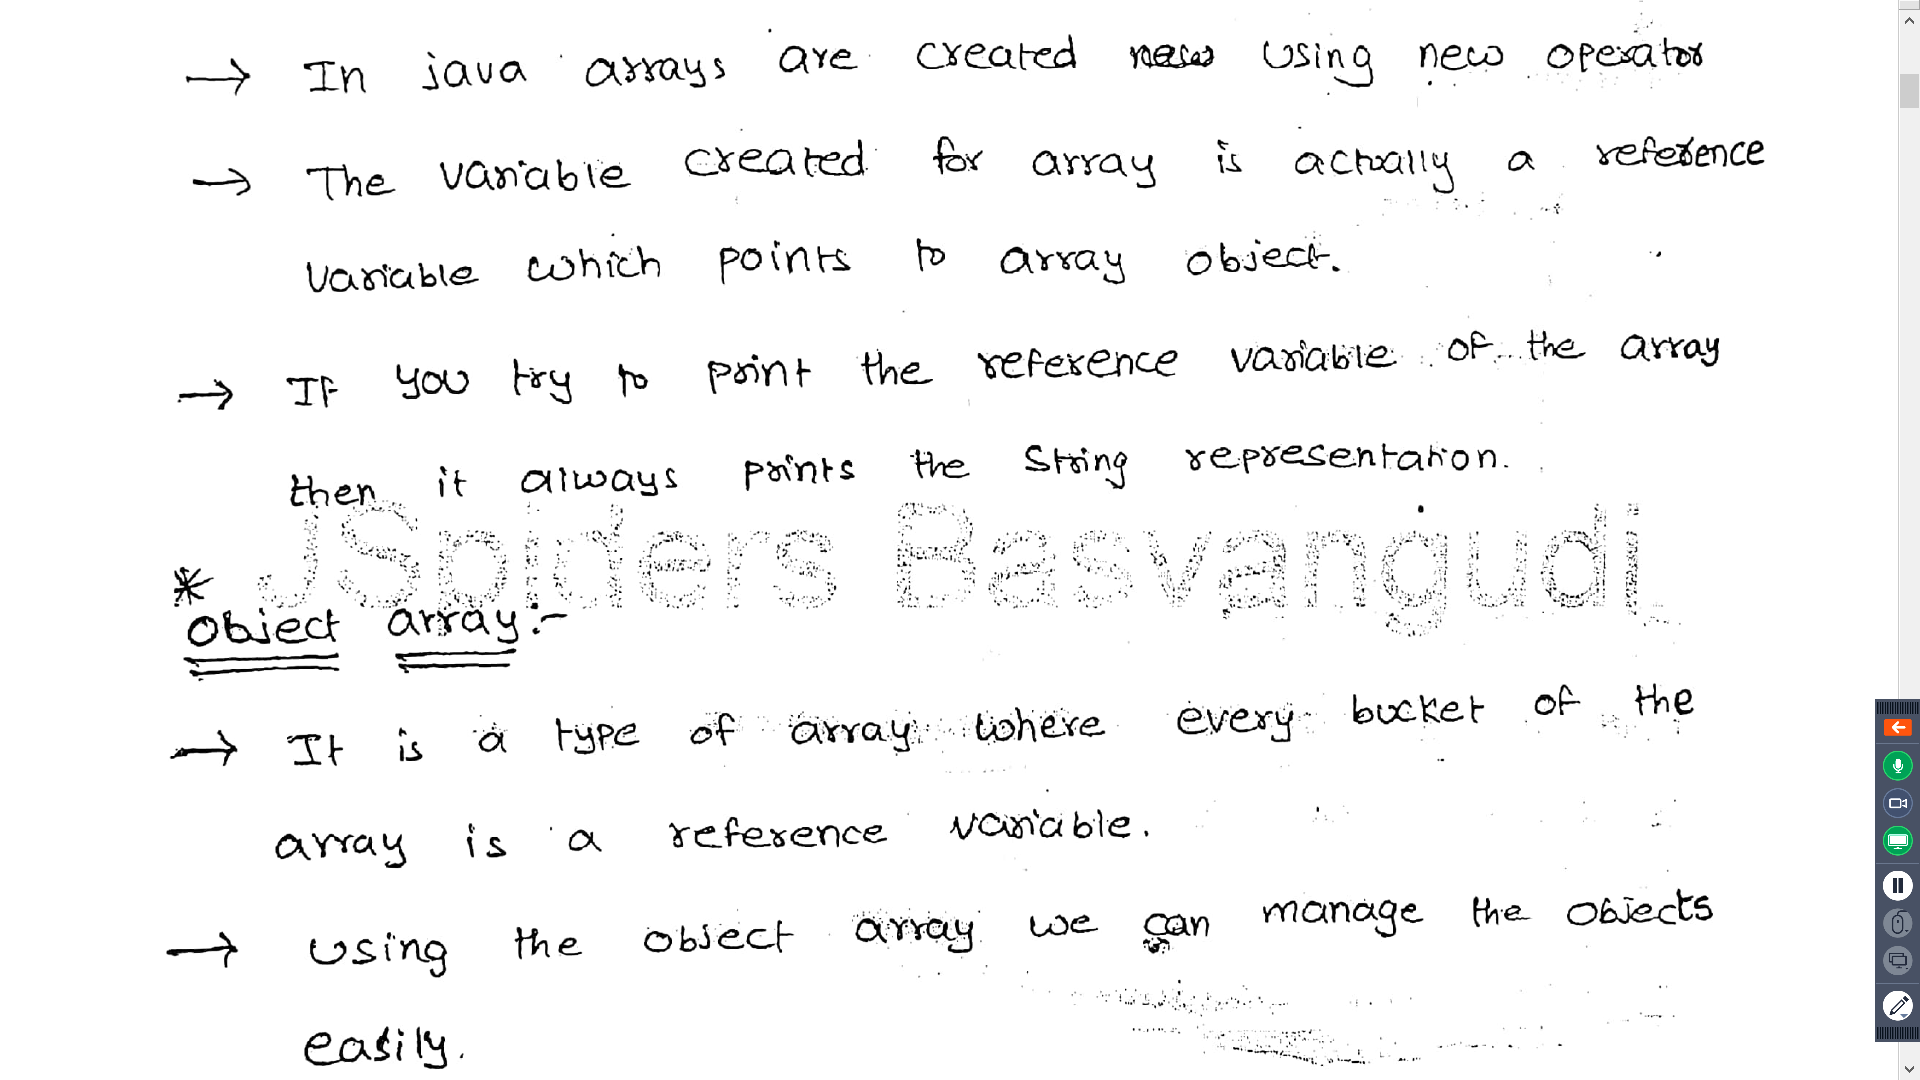 → In java arrays are created using new operator
→ The variable created for array is actually a reference
variable which points to array object.
→ If you try to print the reference variable of the array
then it always prints the String representation.
JSpiders Basvangudi
*
Object array:-
→ It is a type of array where every bucket of the
array is a reference variable.
→ Using the object array we can manage the objects
easily.